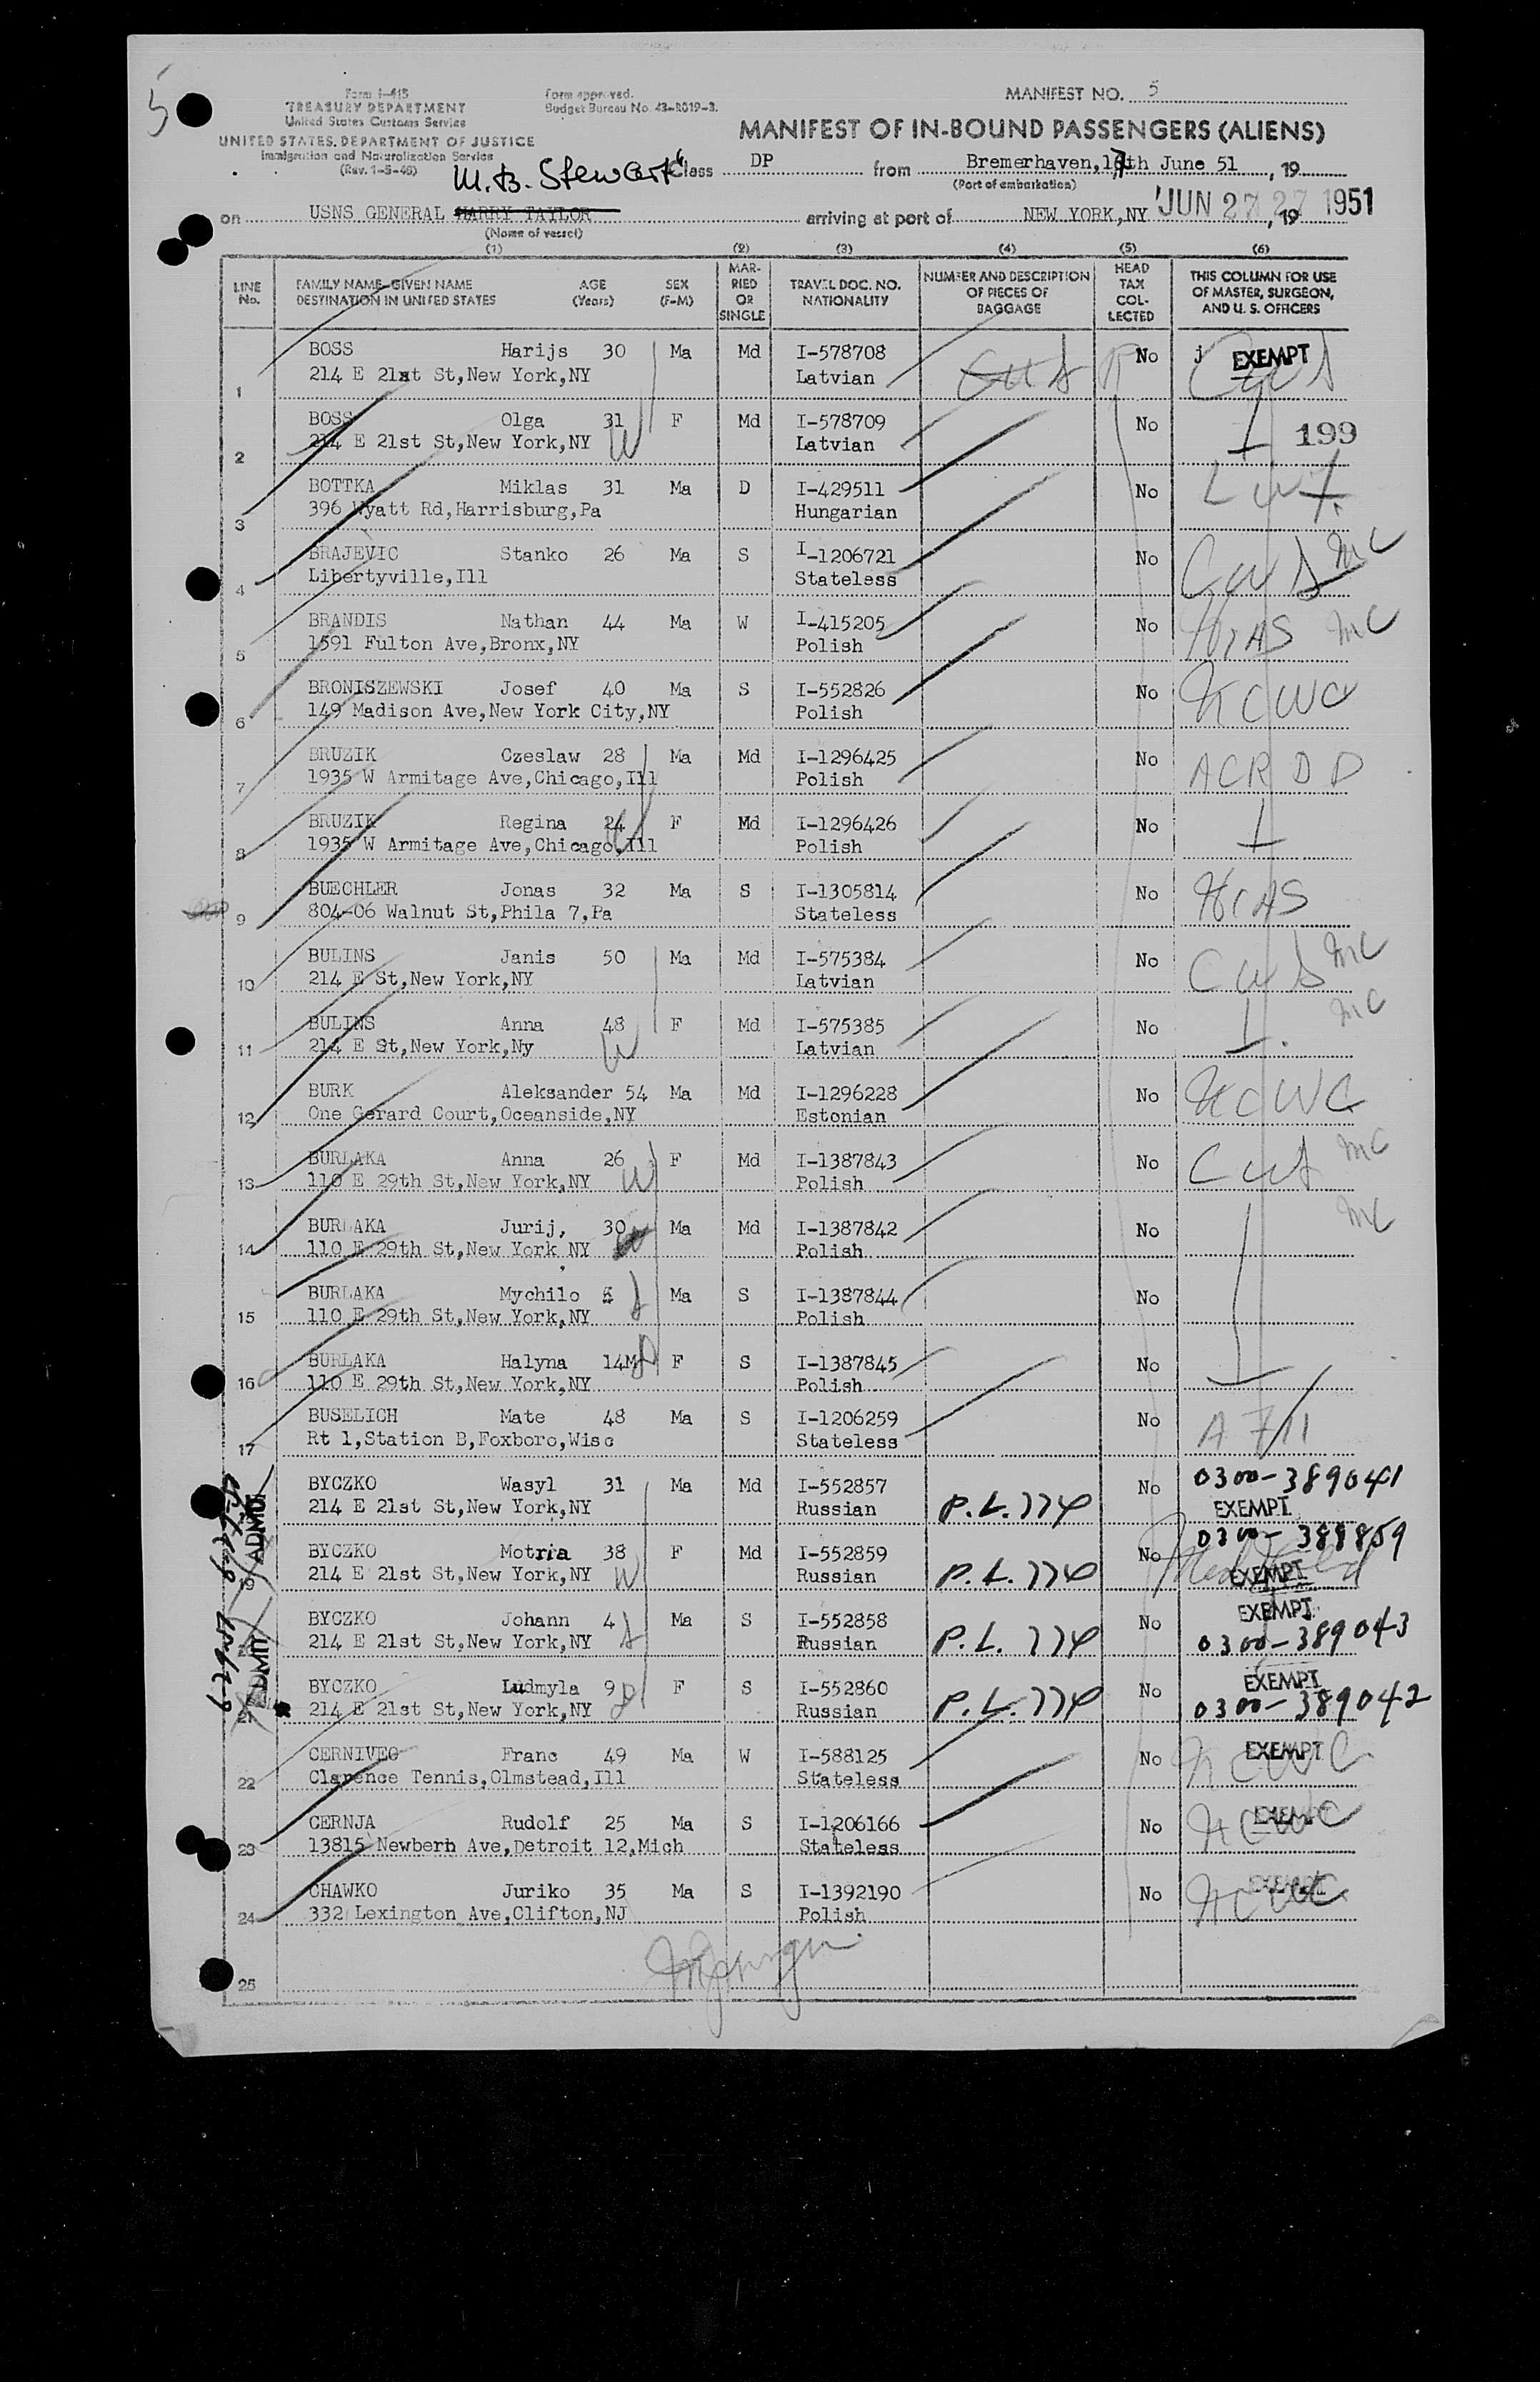 5
Form I-415
TREASURY DEPARTMENT
United States Customs Service
UNITED STATES DEPARTMENT OF JUSTICE
Immigration and Naturalization Service
(Rev. 1-5-48)
Form approved.
Budget Bureau No. 43-R019-3.
MANIFEST NO. 5
MANIFEST OF IN-BOUND PASSENGERS (ALIENS)
M.B. Stewart Class DP from Bremerhaven, 17th June 51, 19
(Port of embarkation)
on USNS GENERAL HARRY TAYLOR arriving at port of NEW YORK,NY JUN 27 27 1951, 19
(Name of vessel)
(1) (2) (3) (4) (5) (6)
LINE No. FAMILY NAME-GIVEN NAME DESTINATION IN UNITED STATES AGE (Years) SEX (F-M) MARRIED OR SINGLE TRAVEL DOC. NO. NATIONALITY NUMBER AND DESCRIPTION OF PIECES OF BAGGAGE HEAD TAX COLLECTED THIS COLUMN FOR USE OF MASTER, SURGEON, AND U. S. OFFICERS
BOSS Harijs 30 Ma Md I-578708 No EXEMPT
1 214 E 21st St,New York,NY Latvian CWS
BOSS Olga 31 F Md I-578709 No
2 214 E 21st St,New York,NY W Latvian 199
BOTTKA Miklas 31 Ma D I-429511 No
3 396 Wyatt Rd,Harrisburg,Pa Hungarian
BRAJEVIC Stanko 26 Ma S I-1206721 No CWS MC
4 Libertyville,Ill Stateless
BRANDIS Nathan 44 Ma W I-415205 No HIAS MC
5 1591 Fulton Ave,Bronx,NY Polish
BRONISZEWSKI Josef 40 Ma S I-552826 No NCWC
6 149 Madison Ave,New York City,NY Polish
BRUZIK Czeslaw 28 Ma Md I-1296425 No ACRDD
7 1935 W Armitage Ave,Chicago,Ill Polish
BRUZIK Regina 24 F Md I-1296426 No
8 1935 W Armitage Ave,Chicago,Ill Polish
BUECHLER Jonas 32 Ma S I-1305814 No HIAS
9 804-06 Walnut St,Phila 7,Pa Stateless
BULINS Janis 50 Ma Md I-575384 No CWS MC
10 214 E St,New York,NY Latvian
BULINS Anna 48 F Md I-575385 No MC
11 214 E St,New York,Ny W Latvian
BURK Aleksander 54 Ma Md I-1296228 No NCWC
12 One Gerard Court,Oceanside,NY Estonian
BURLAKA Anna 26 F Md I-1387843 No CWS MC
13 110 E 29th St,New York,NY W Polish
BURLAKA Jurij, 30 Ma Md I-1387842 No MC
14 110 E 29th St,New York NY Polish
BURLAKA Mychilo Ma S I-1387844 No
15 110 E 29th St,New York,NY Polish
BURLAKA Halyna 14M F S I-1387845 No
16 110 E 29th St,New York,NY Polish
BUSELICH Mate 48 Ma S I-1206259 No
17 Rt 1,Station B,Foxboro,Wisc Stateless
BYCZKO Wasyl 31 Ma Md I-552857 No 0300-389041
214 E 21st St,New York,NY Russian P.L. 774 EXEMPT
BYCZKO Motria 38 F Md I-552859 No 0300-388859
19 214 E 21st St,New York,NY W Russian P.L. 774 EXEMPT
BYCZKO Johann 4 Ma S I-552858 No EXEMPT
214 E 21st St,New York,NY Russian P.L. 774 0300-389043
BYCZKO Ludmyla 9 F S I-552860 No EXEMPT
21 214 E 21st St,New York,NY Russian P.L. 774 0300-389042
CERNIVEC Franc 49 Ma W I-588125 No EXEMPT NCWC
22 Clarence Tennis,Olmstead,Ill Stateless
CERNJA Rudolf 25 Ma S I-1206166 No EXEMPT NCWC
23 13815 Newbern Ave,Detroit 12,Mich Stateless
CHAWKO Juriko 35 Ma S I-1392190 No EXEMPT NCWC
24 332 Lexington Ave,Clifton,NJ Polish
25